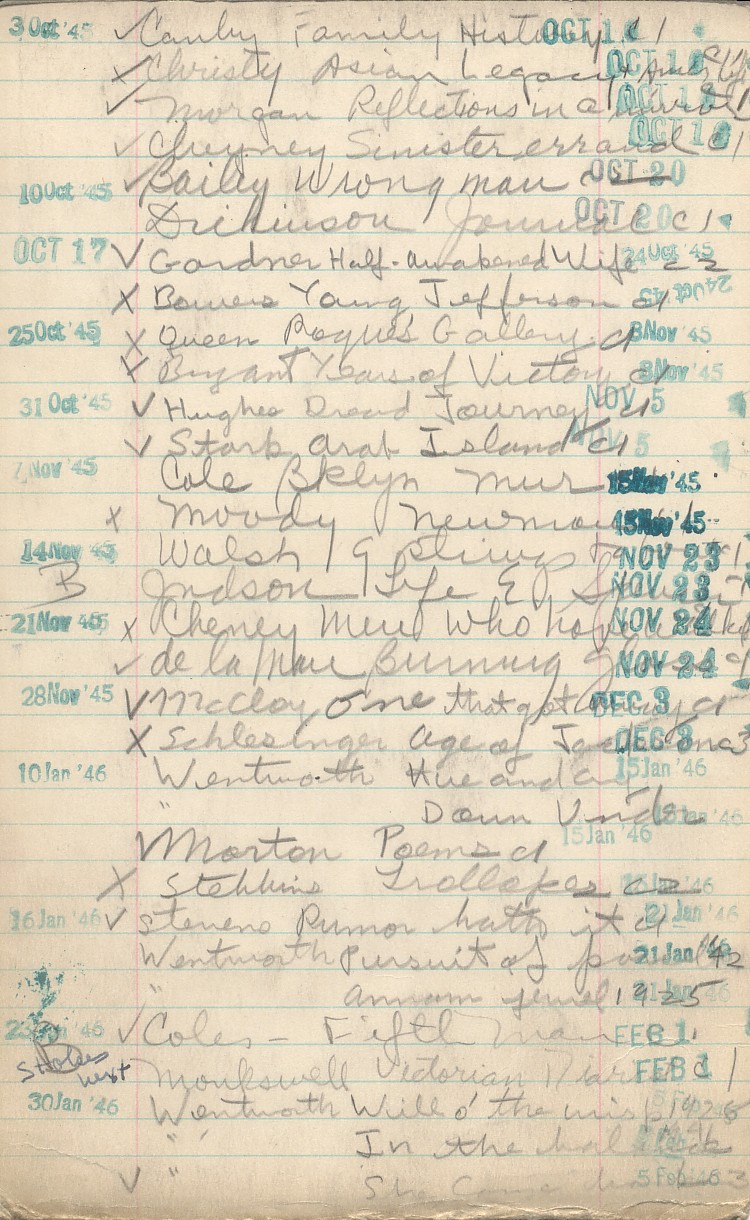 3 Oct '45 ✓ Canby Family History OCT 1 c1
X Christy Asian Legacy + Amer
✓ Morgan Reflections in a mirror OCT 1
✓ Cheyney Sinister errand OCT 1 c1
10 Oct '45 ✓ Bailey Wrong man OCT 20
Dickinson Journal OCT 20 c1
OCT 17 ✓ Gardner Half-awakened Wife 24 Oct '45 c2
X Bowers Young Jefferson c1 24 Oct '45
25 Oct '45 X Queen Rogues Gallery c1 8 Nov '45
X Bryant Years of Victory c1 8 Nov '45
31 Oct '45 ✓ Hughes Dread Journey c1 NOV 5
✓ Stark Arab Island c1 NOV 5
7 Nov '45 Cole Bklyn Mur 15 Nov '45
X Moody Newman 15 Nov '45
14 Nov 45 Walsh NOV 23
B Judson Life E NOV 23
21 Nov 45 X Cheney Men Who have NOV 24
✓ de la Mare Burning NOV 24
28 Nov '45 ✓ McCloy One that got away c1 DEC 3
X Schlesinger Age of Jackson c3 DEC 3
10 Jan '46 Wentworth Hue and cry 15 Jan '46
" Down Under Jan '46
Morton Poems c1 15 Jan '46
X Stebbins Trollopes c2 Jan '46
16 Jan '46 ✓ Stevens Rumor hath it c1 21 Jan '46
Wentworth Pursuit of 21 Jan '46
" Annam jewel 1925 21 Jan '46
23 Jan '46 ✓ Coles – Fifth Man FEB 1
Stokes next Monkswell Victorian Diarist FEB 1 c1
30 Jan '46 Wentworth Will o' the wisp
" In the
✓ " She Came back 5 Feb '46